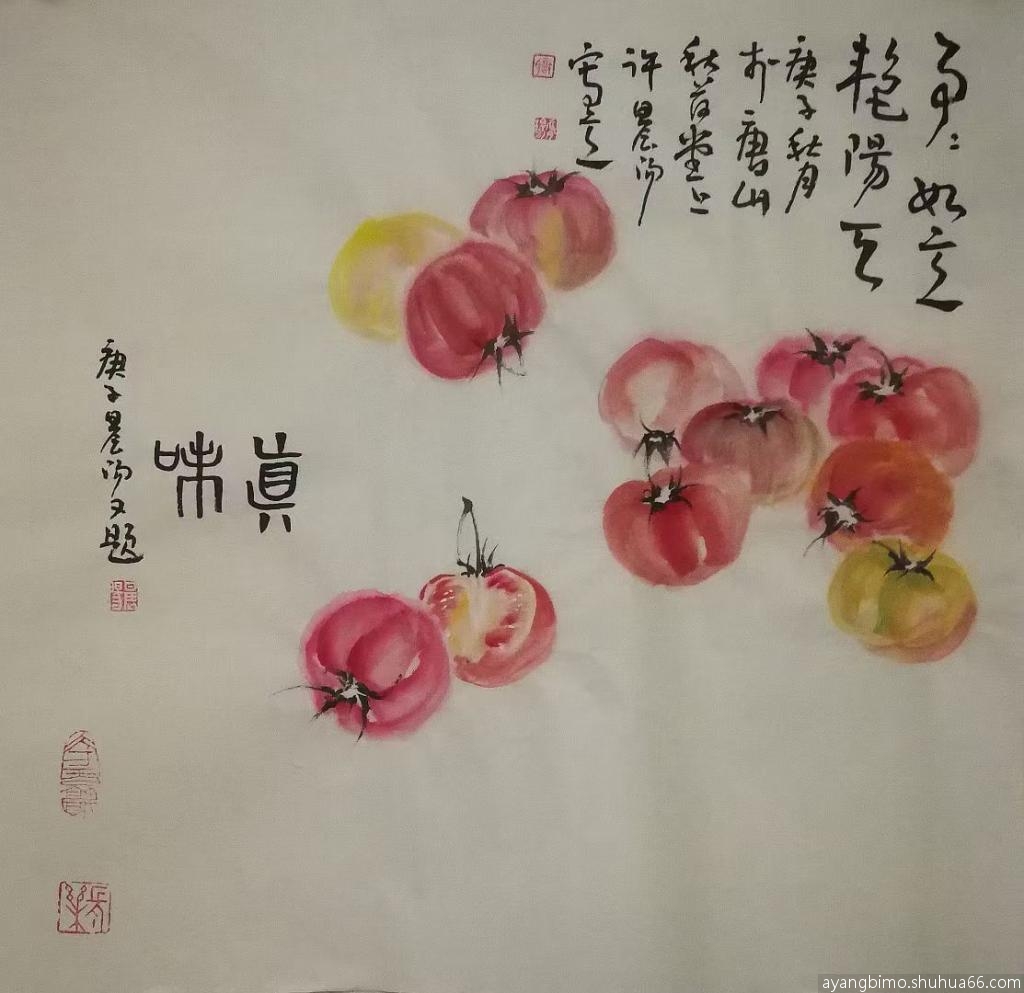 事〻如意
艳陽天
庚子秋月
於唐山
秋荷堂上
许晨阳
眞味
庚子晨阳又题
ayangbimo.shuhua66.com